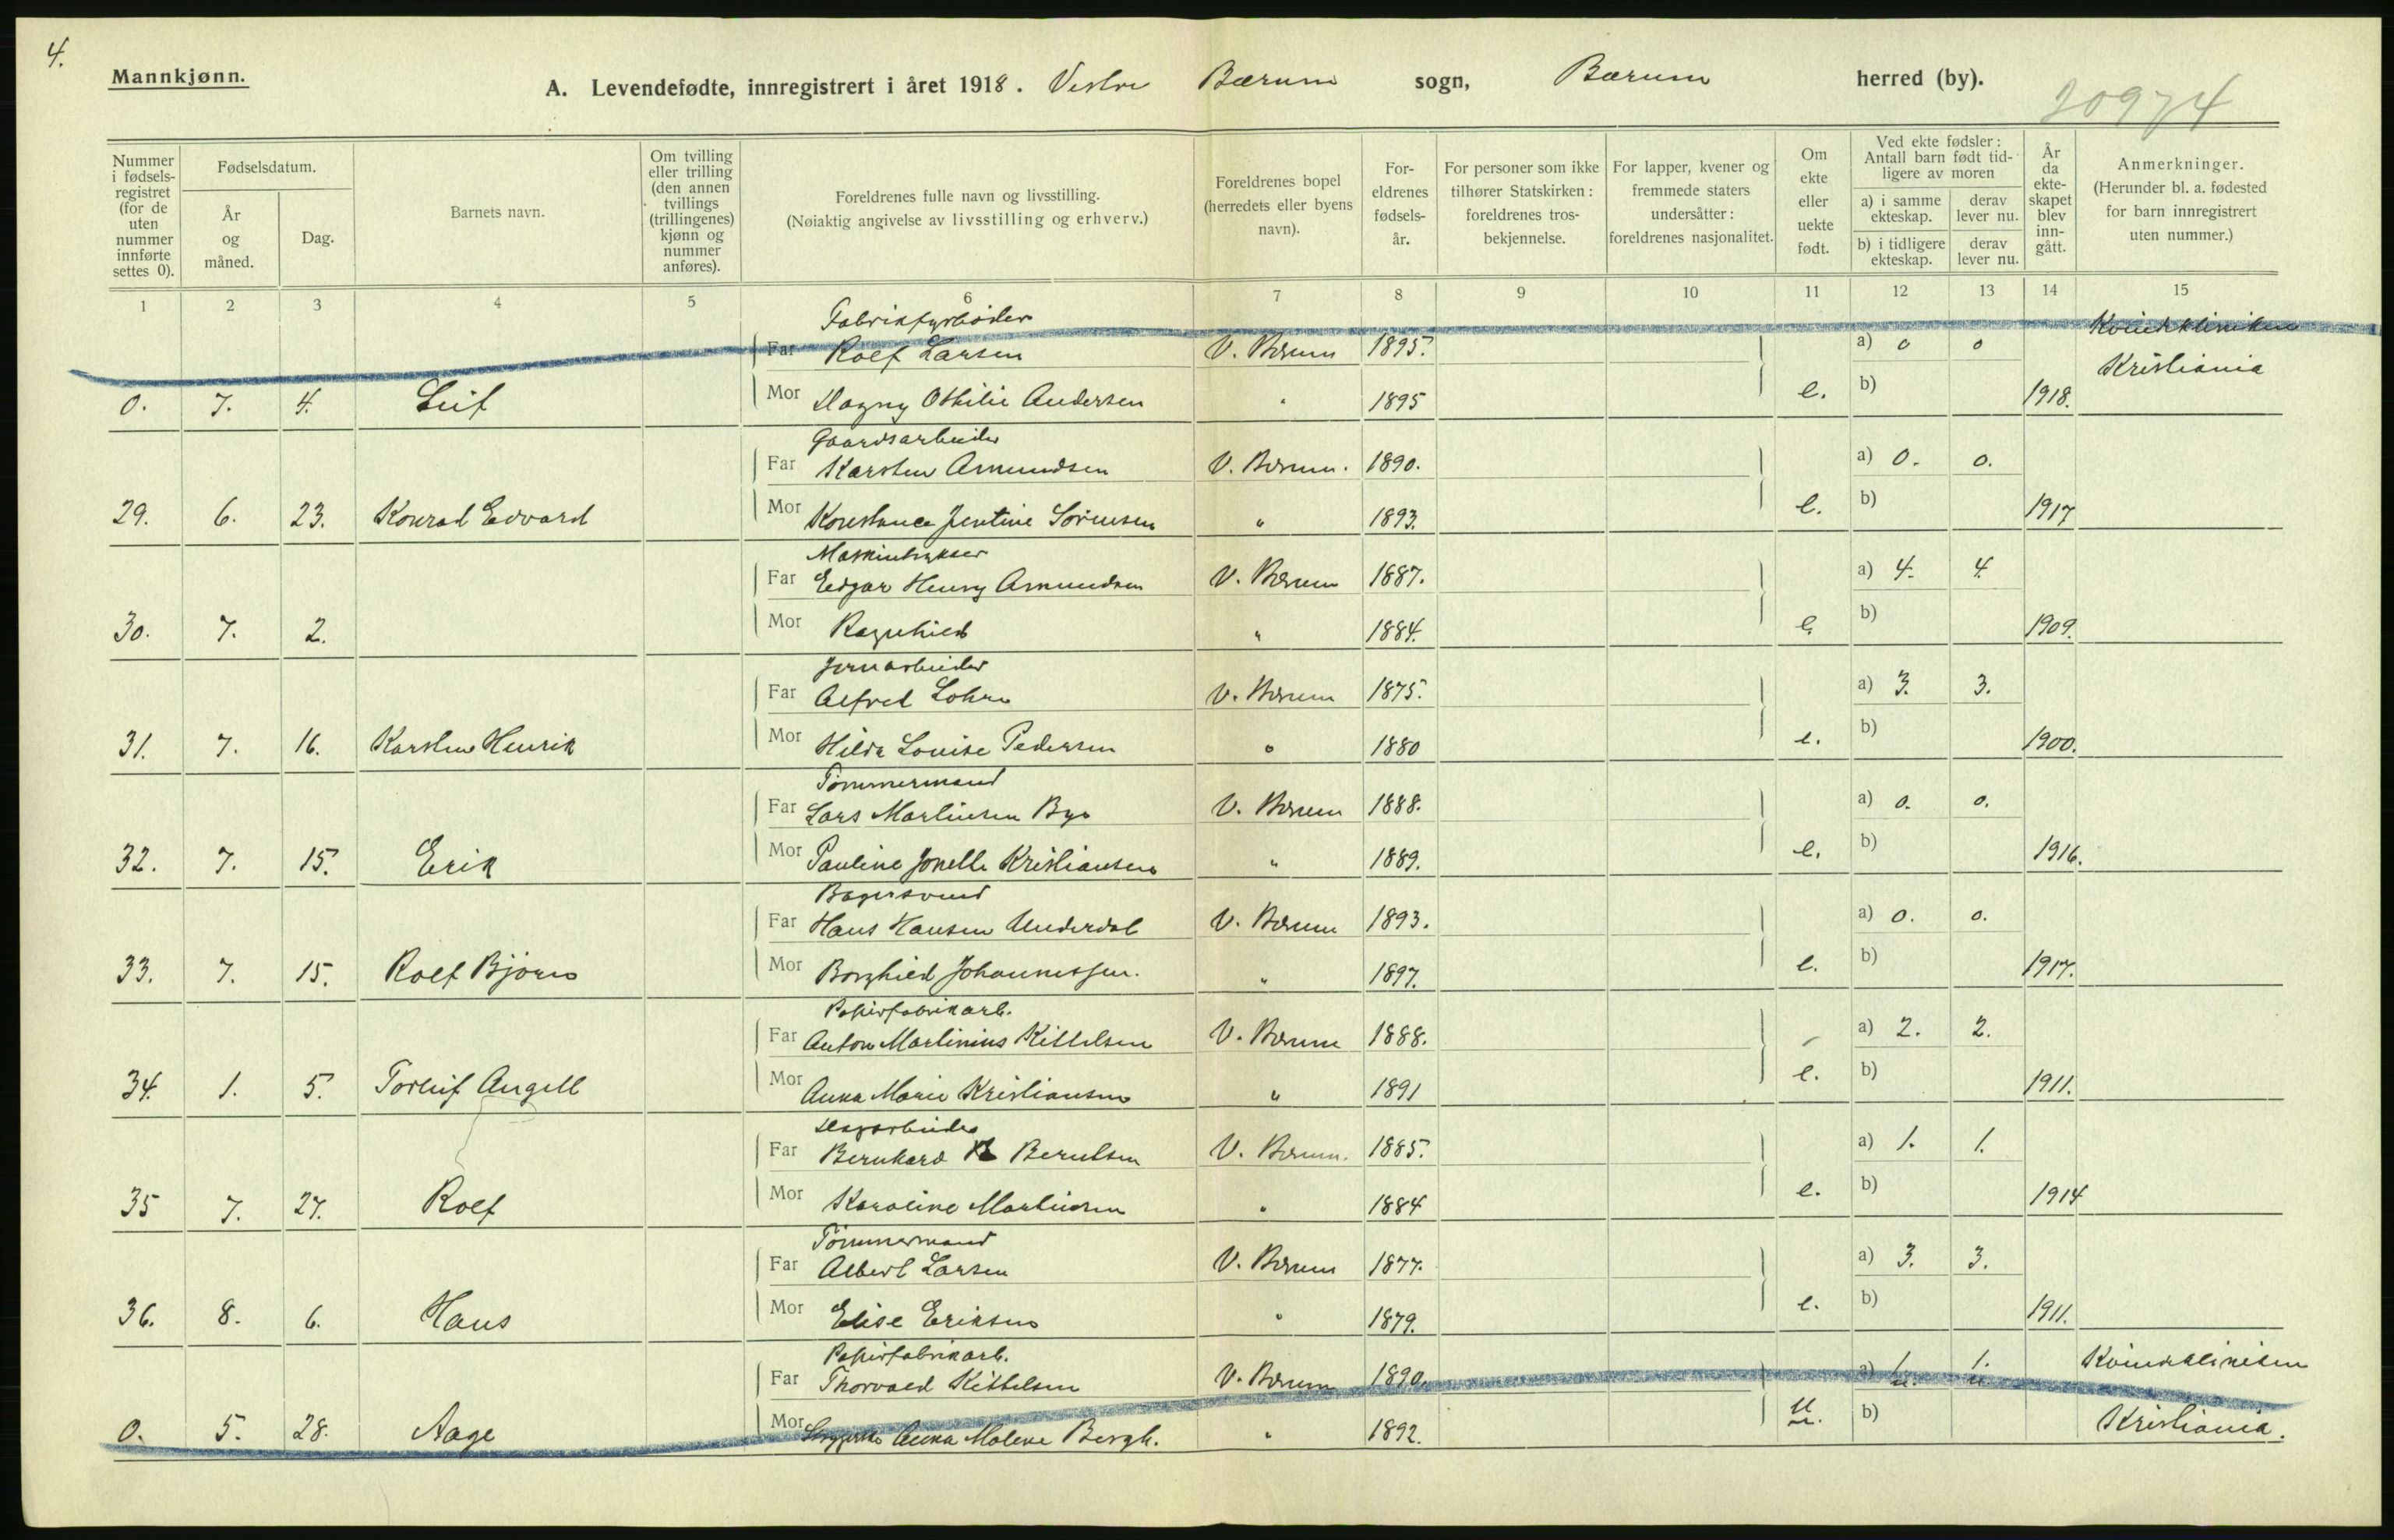 4.
Mannkjønn.
A. Levendefødte, innregistrert i året 1918. Vestre Bærum sogn, Bærum herred (by).
20974
Nummer i fødsels-registret (for de uten nummer innførte settes 0).
Fødselsdatum.
År og måned.
Dag.
Barnets navn.
Om tvilling eller trilling (den annen tvillings (trillingenes) kjønn og nummer anføres).
Foreldrenes fulle navn og livsstilling.
(Nøiaktig angivelse av livsstilling og erhverv.)
Foreldrenes bopel (herredets eller byens navn).
For-eldrenes fødsels-år.
For personer som ikke tilhører Statskirken: foreldrenes tros-bekjennelse.
For lapper, kvener og fremmede staters undersåtter: foreldrenes nasjonalitet.
Om ekte eller uekte født.
Ved ekte fødsler: Antall barn født tid-ligere av moren
a) i samme ekteskap.
derav lever nu.
b) i tidligere ekteskap.
derav lever nu.
År da ekte-skapet blev inn-gått.
Anmerkninger.
(Herunder bl. a. fødested for barn innregistrert uten nummer.)
1 2 3 4 5 6 7 8 9 10 11 12 13 14 15
Fabrikfyrbøder
Far Rolf Larsen V. Bærum 1895. a) 0 0 Kvindekliniken
Kristiania
0. 7. 4. Leif Mor Dagny Othilie Andersen " 1895 e. b) 1918.
Gaardsarbeider
Far Karsten Amundsen V. Bærum. 1890. a) 0. 0.
29. 6. 23. Konrad Edvard Mor Konstance Jentine Sörensen " 1893. e. b) 1917
Far Edgar Henry Amundsen V. Bærum 1887. a) 4. 4.
30. 7. 2. Mor Ragnhild " 1884. e. b) 1909.
Jernarbeider
Far Alfred Lohne V. Bærum 1875. a) 3. 3.
31. 7. 16. Karsten Henrik Mor Hilda Louise Pedersen " 1880 e. b) 1900.
Tömmermand
Far Lars Martinsen Bye V. Bærum 1888. a) 0. 0.
32. 7. 15. Erik Mor Pauline Jonelle Kristiansen " 1889. e. b) 1916.
Bagersvend
Far Hans Hansen Underdal V. Bærum 1893. a) 0. 0.
33. 7. 15. Rolf Björn Mor Borghild Johannessen. " 1897. e. b) 1917.
Papirfabrikarb.
Far Anton Martinius Kittelsen V. Bærum 1888. a) 2. 2.
34. 1. 5. Torleif Angell Mor Anna Marie Kristiansen " 1891 e. b) 1911.
Dagarbeider
Far Bernhard Berntsen V. Bærum. 1885. a) 1. 1.
35 7. 27. Rolf Mor Karoline Martinsen " 1884 e. b) 1914
Tömmermand
Far Albert Larsen V. Bærum 1877. a) 3. 3.
36. 8. 6. Hans Mor Elise Eriksen " 1879. e. b) 1911.
Papirfabrikarb.
Far Thorvald Kittelsen V. Bærum 1890. a) 1. 1. Kvindekliniken
u. u.
0. 5. 28. Aage Mor Anna Malene Bergh. " 1892. u. b) Kristiania.